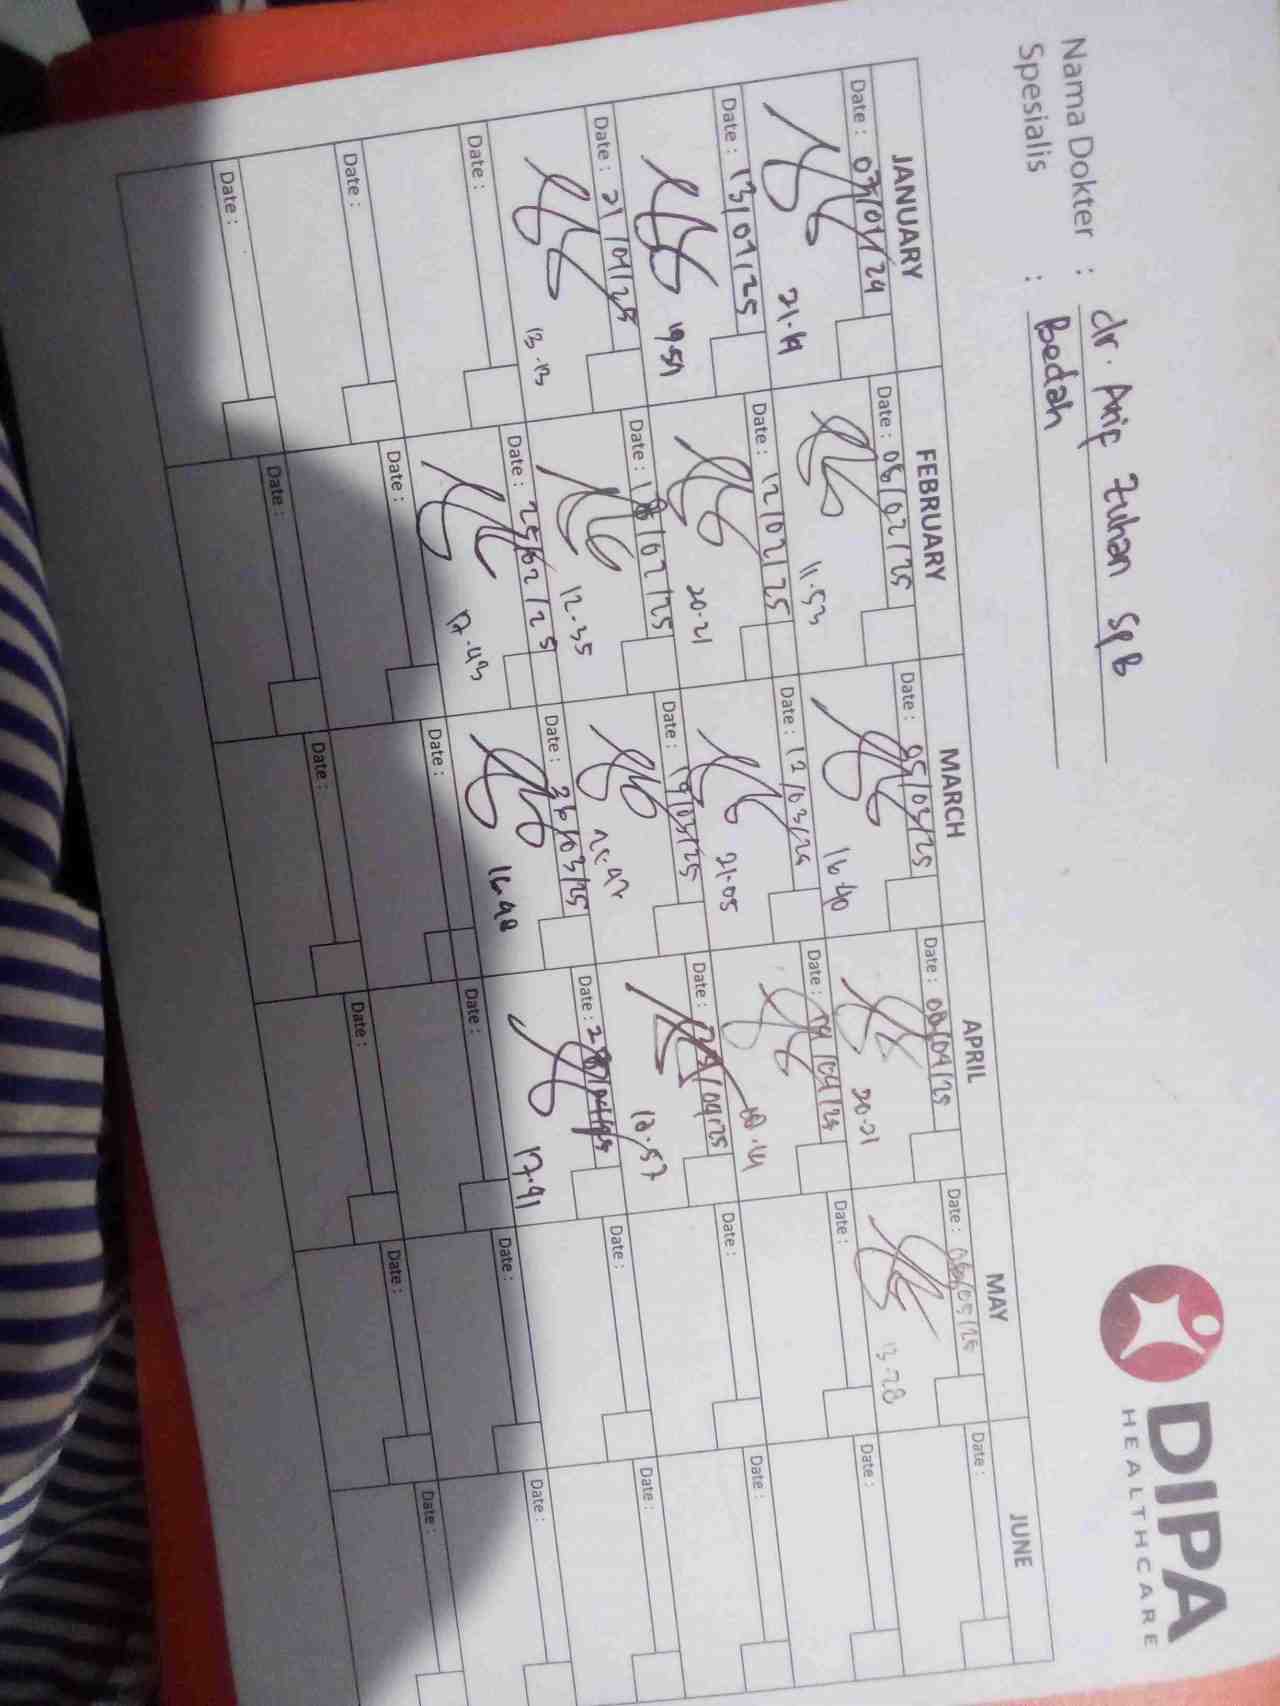 DIPA
HEALTHCARE
Nama Dokter : dr. Arif Zuhan SpB
Spesialis : Bedah
JANUARY FEBRUARY MARCH APRIL MAY JUNE
Date : 03/01/24 Date : 08/02/25 Date : 05/03/25 Date : 08/04/25 Date : 08/05/25 Date :
21.19 11.53 16.40 20.21 13.28
Date : 13/01/25 Date : 12/02/25 Date : 12/03/25 Date : 14/04/25 Date : Date :
19.59 20.21 21.05
Date : 21/01/25 Date : 18/02/25 Date : 19/03/25 Date : 23/04/25 Date : Date :
13.13 12.35 12.57
Date : Date : 25/02/25 Date : 26/03/25 Date : 28/04/25 Date : Date :
17.43 16.48 17.41
Date : Date : Date : Date : Date : Date :
Date : Date : Date : Date : Date : Date :